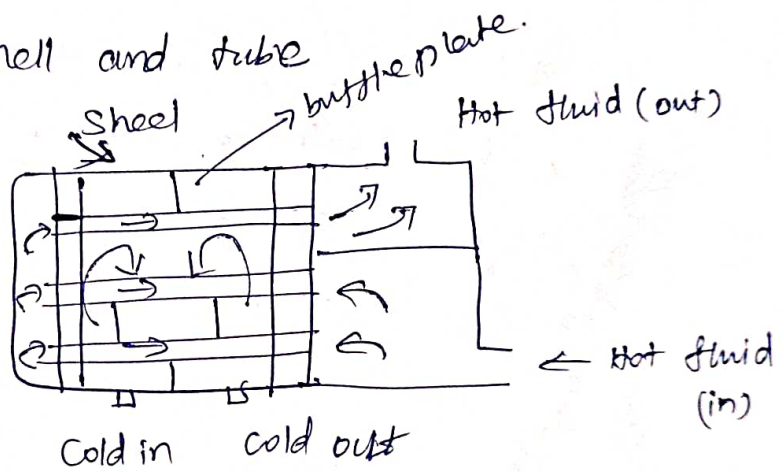 hell and tube
Sheel
buffleplate.
Hot fluid (out)
Hot fluid
(in)
Cold in
Cold out